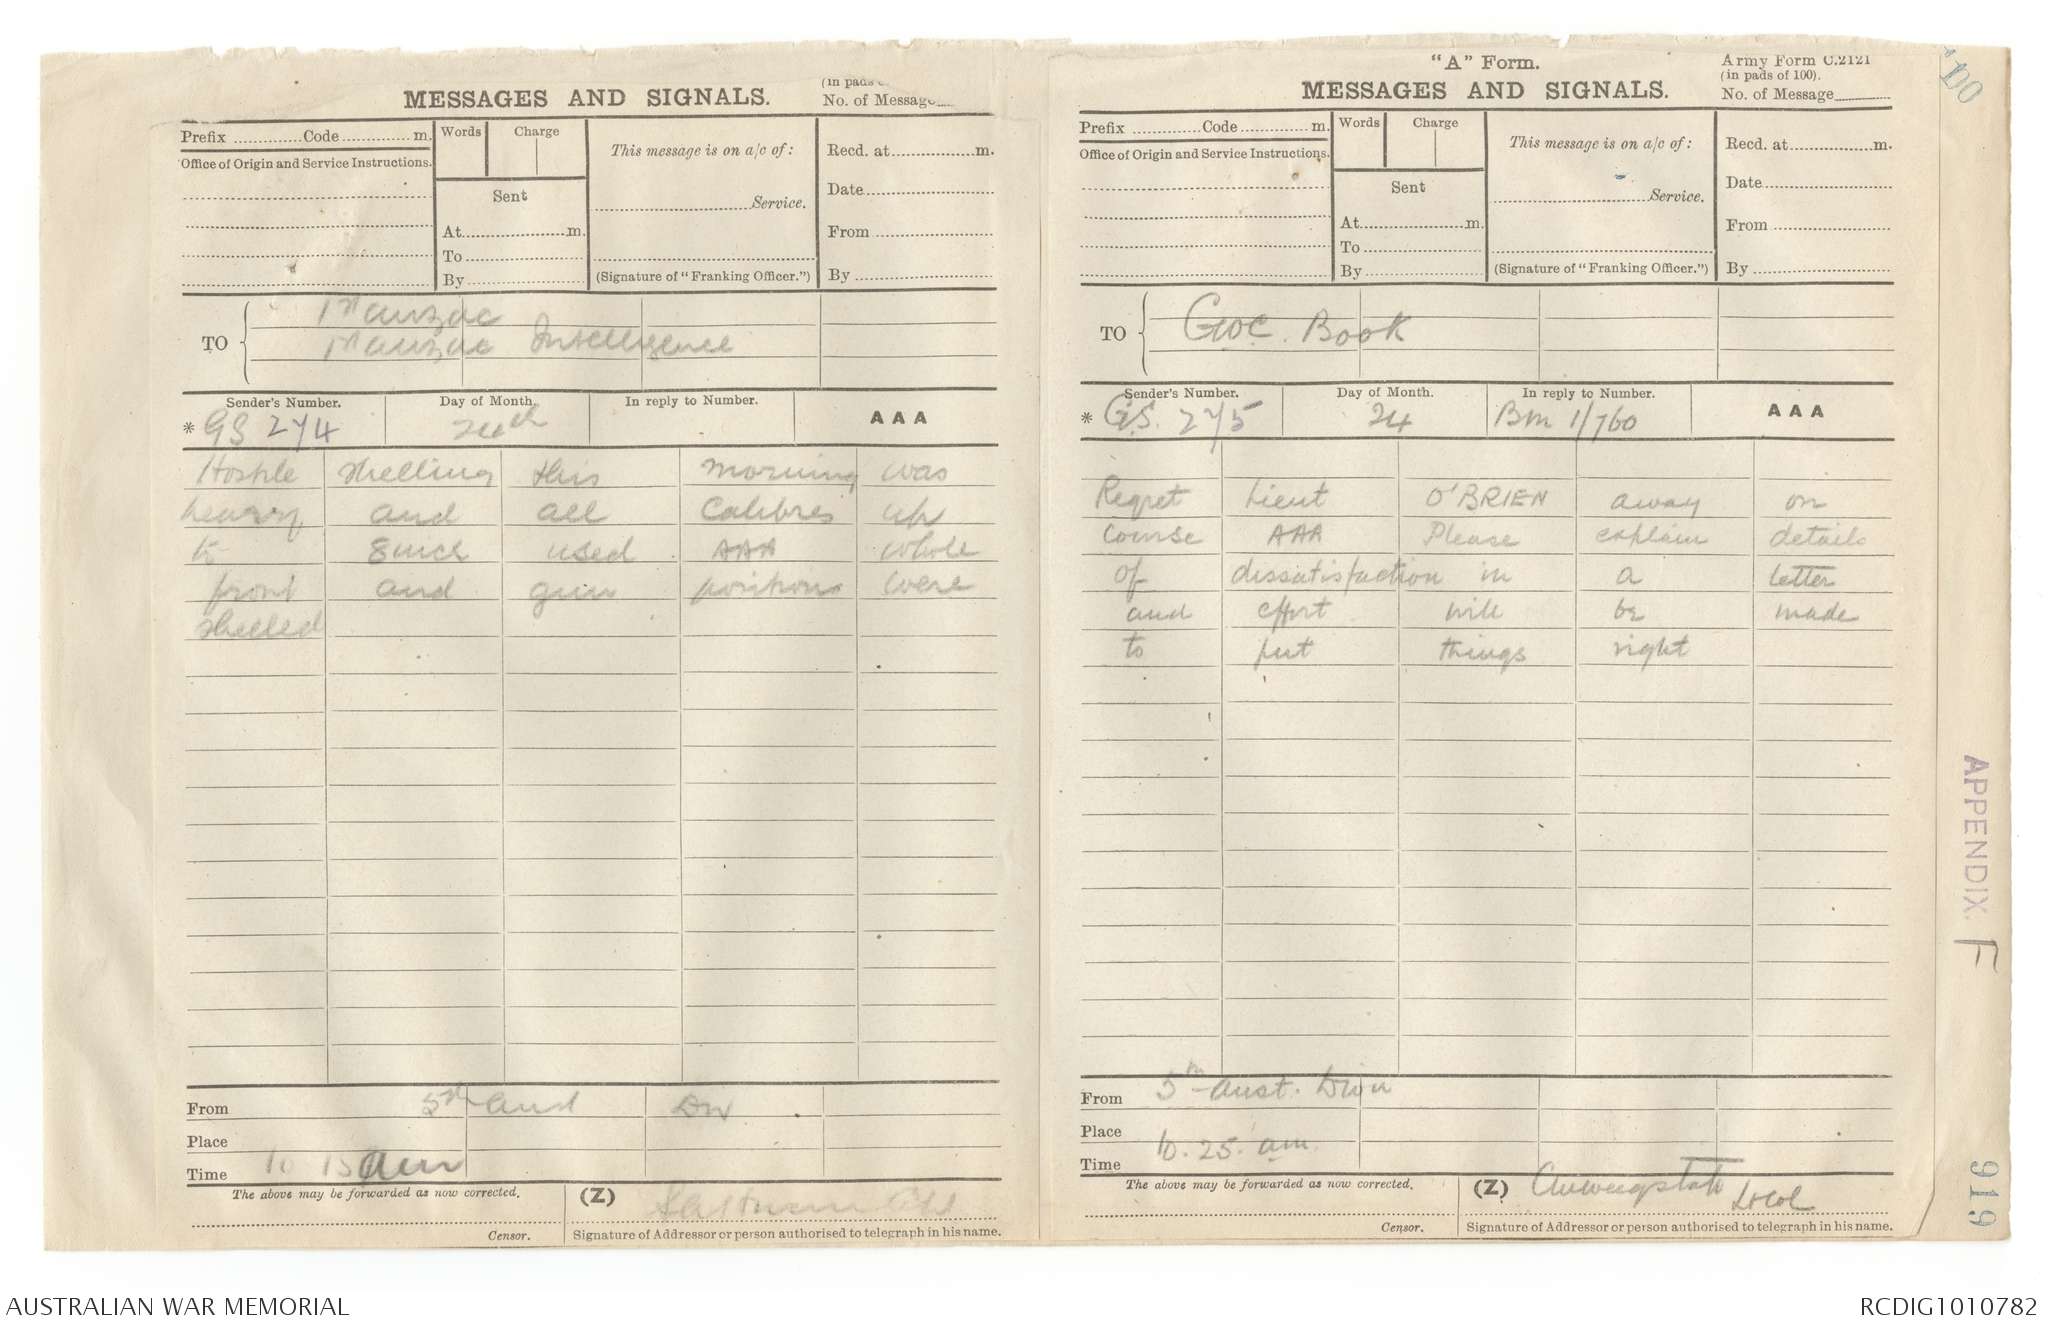 MESSAGES AND SIGNALS.
(in pads
No. of Message
Prefix Code m.
Words Charge
This message is on a/c of:
Recd. at m.
Office of Origin and Service Instructions.
Sent
Date
Service.
At m.
From
To
By
(Signature of "Franking Officer.")
By
TO
1st Anzac
1st Anzac Intelligence
Sender's Number. Day of Month. In reply to Number. AAA
* GS 274 24th
Hostile shelling this morning was
heavy and all Calibres up
to 8 inch used AAA whole
front and gun positions were
shelled
From 5th Aust Div
Place
Time 10 15 am
The above may be forwarded as now corrected. (Z)
Censor. Signature of Addressor or person authorised to telegraph in his name.
"A" Form.
Army Form C.2121
MESSAGES AND SIGNALS.
(in pads of 100).
No. of Message
Prefix Code m.
Words Charge
This message is on a/c of:
Recd. at m.
Office of Origin and Service Instructions.
Sent
Date
Service.
At m.
From
To
By
(Signature of "Franking Officer.")
By
TO
GOC. Book
Sender's Number. Day of Month. In reply to Number. AAA
* G.S. 275 24 Bm 1/760
Regret Lieut O'BRIEN away on
Course AAA Please explain details
of dissatisfaction in a letter
and effort will be made
to put things right
From 5th Aust. Divn
Place
Time 10.25. am.
The above may be forwarded as now corrected. (Z)
Lt Col
Censor. Signature of Addressor or person authorised to telegraph in his name.
APPENDIX. F
919
AUSTRALIAN WAR MEMORIAL
RCDIG1010782